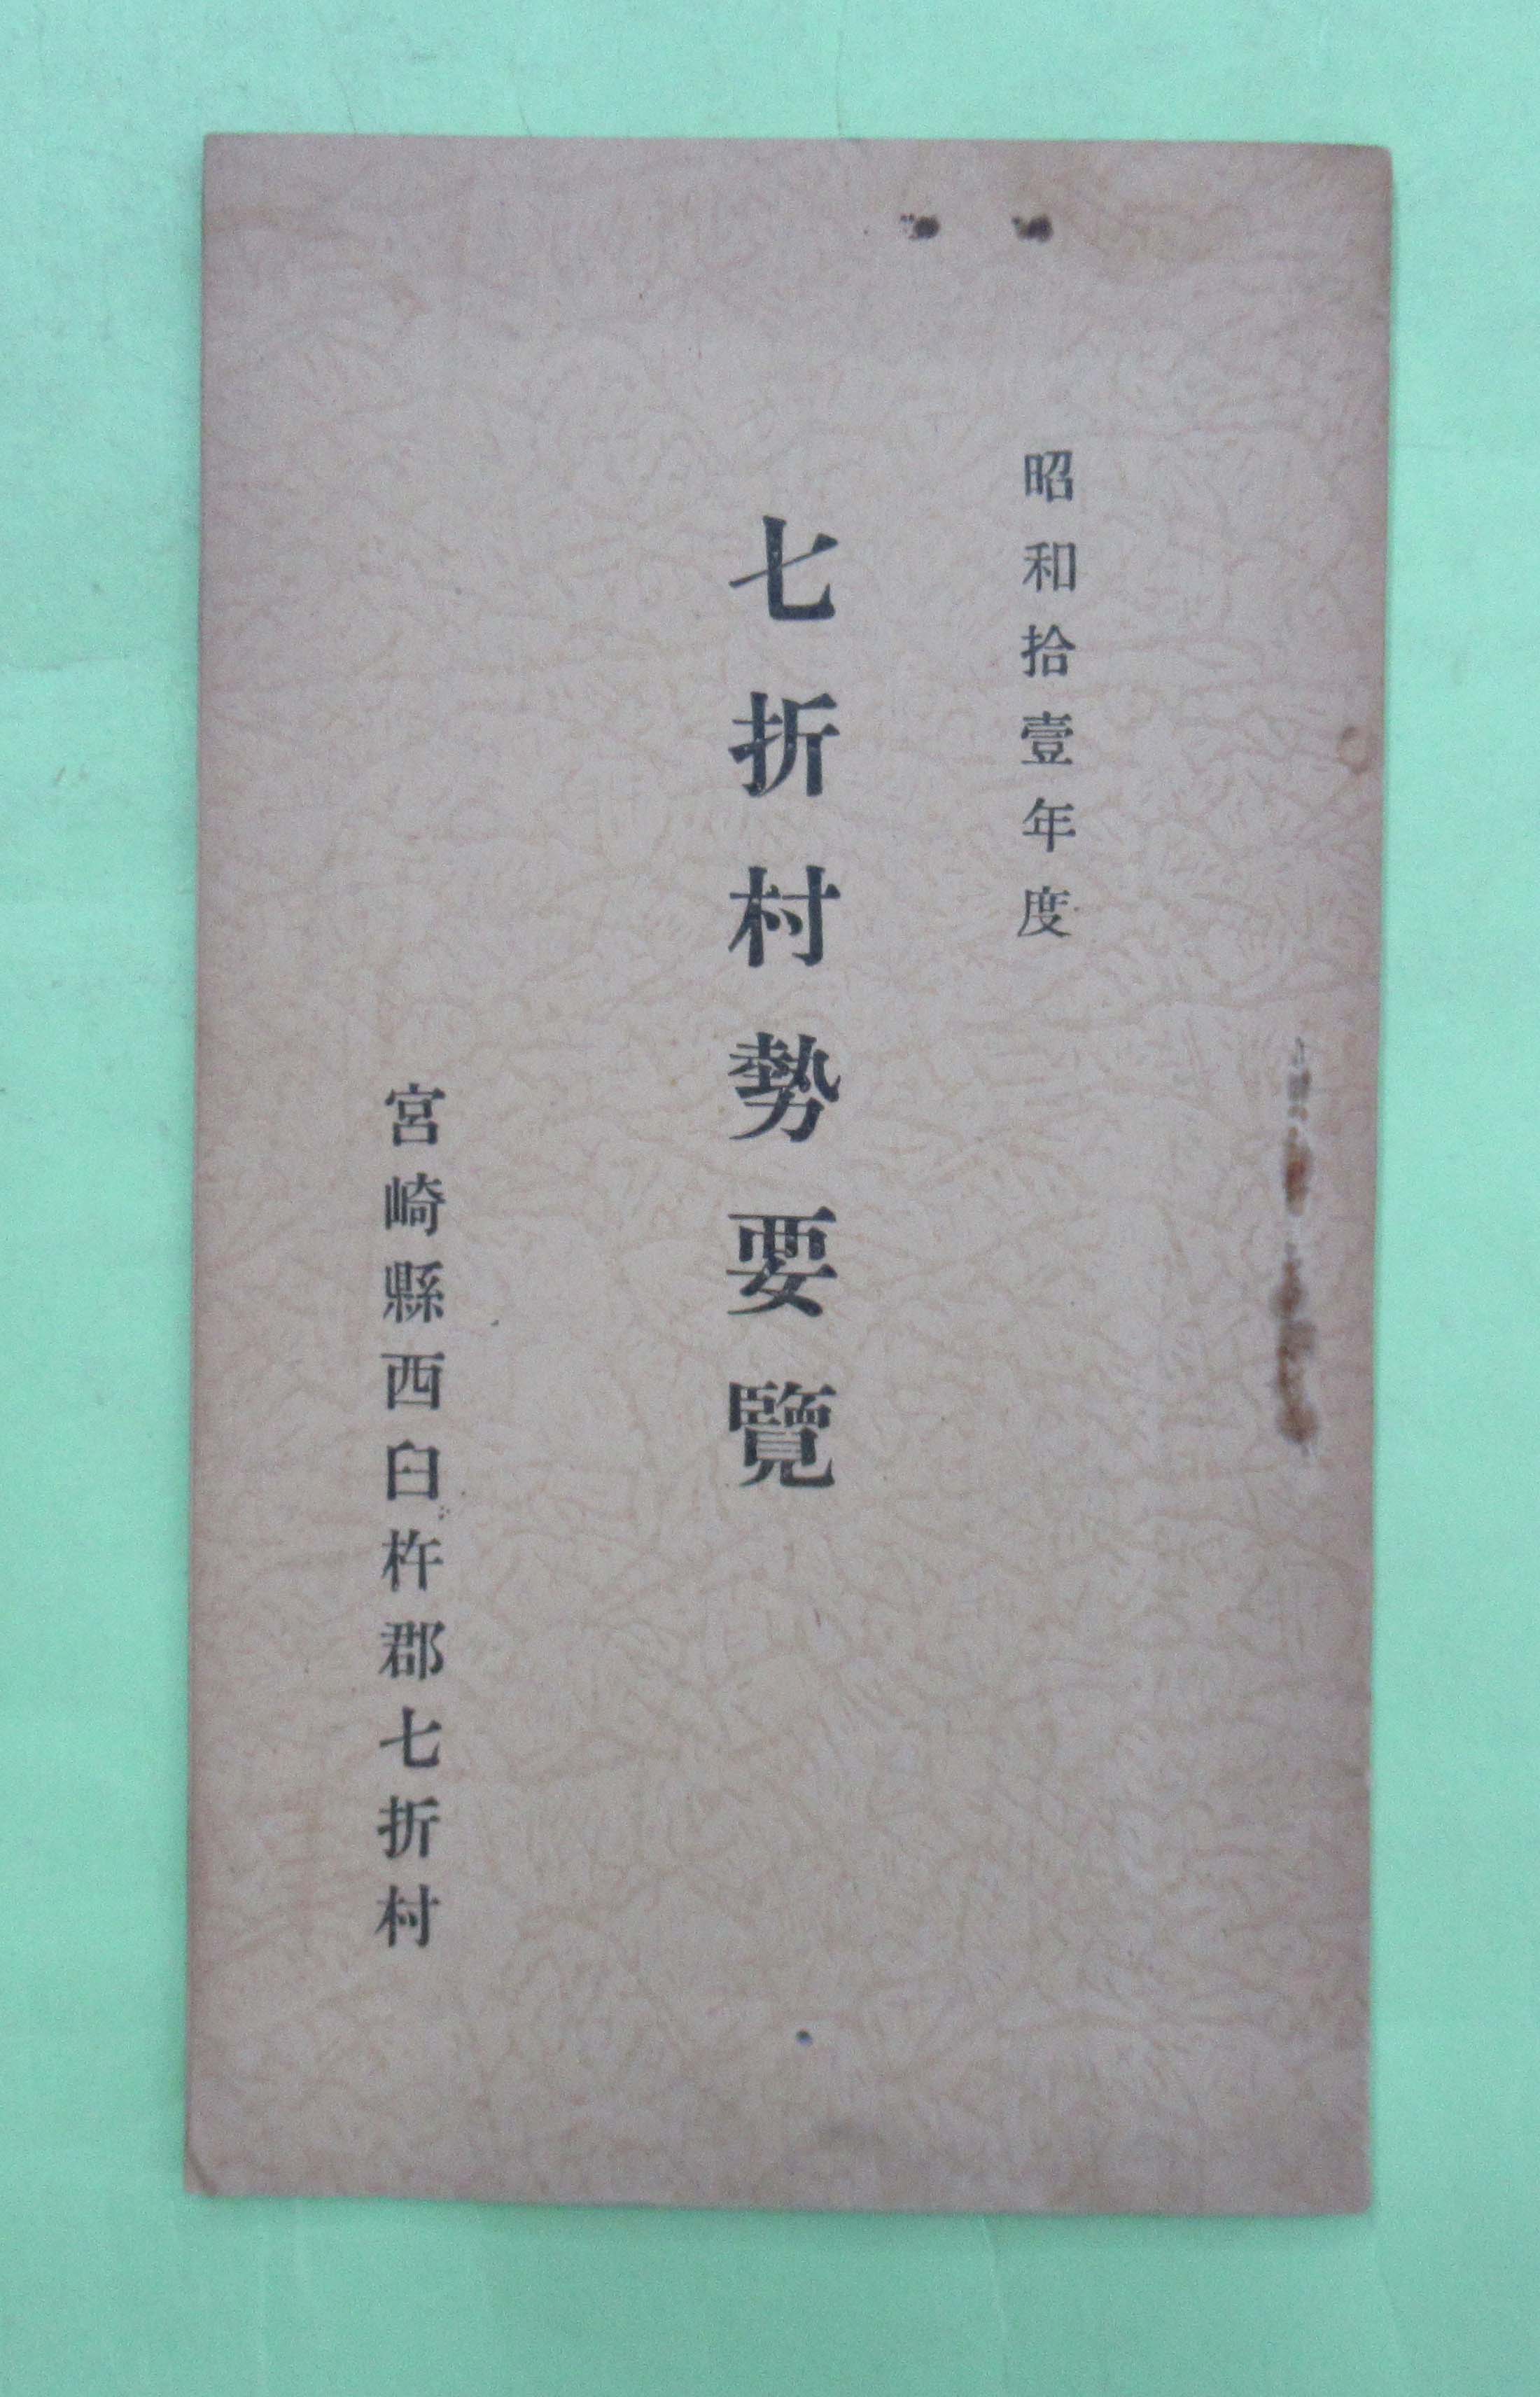 昭和拾壹年度
七折村勢要覽
宮崎縣西臼杵郡七折村